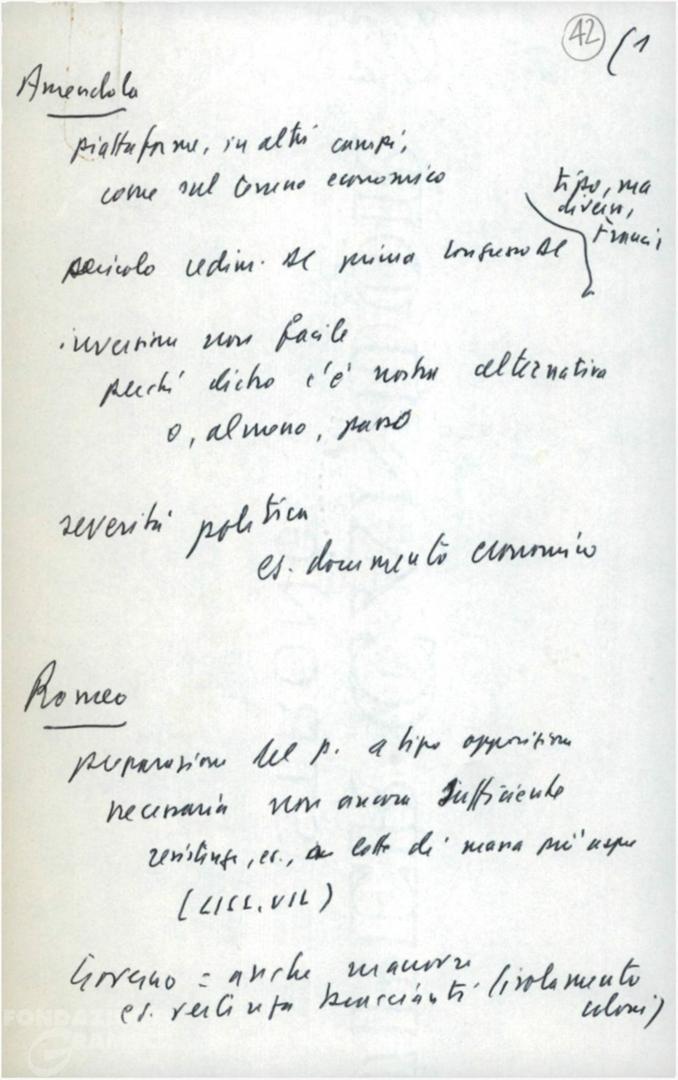 42 (1
Amendola
piattaforme, in altri campi,
come sul terreno economico
tipo, ma
diversi,
pericolo redim. del prima
inversione non facile
perché dietro c'è nostra alternativa
o, almeno, passo
severità politica
es. documento economico
Romeo
preparazione del p. a tipo opposizione
necessaria non ancora sufficiente
resistenze, es., a lotte di massa più aspre
(LICL.VIL)
Governo = anche manovre
es. vertenza braccianti (isolamento
coloni)
FONDAZIONE
GRAMSCI